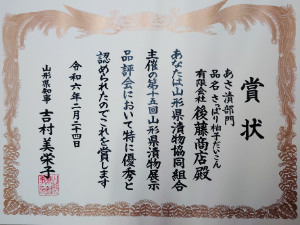 賞状
あさ漬部門
品名 さっぱり柚子だいこん
有限会社 後藤商店殿
あなたは山形県漬物協同組合
主催の第十五回山形県漬物展示
品評会において特に優秀と
認められたのでこれを賞します
令和六年二月二十四日
山形県知事 吉村美栄子